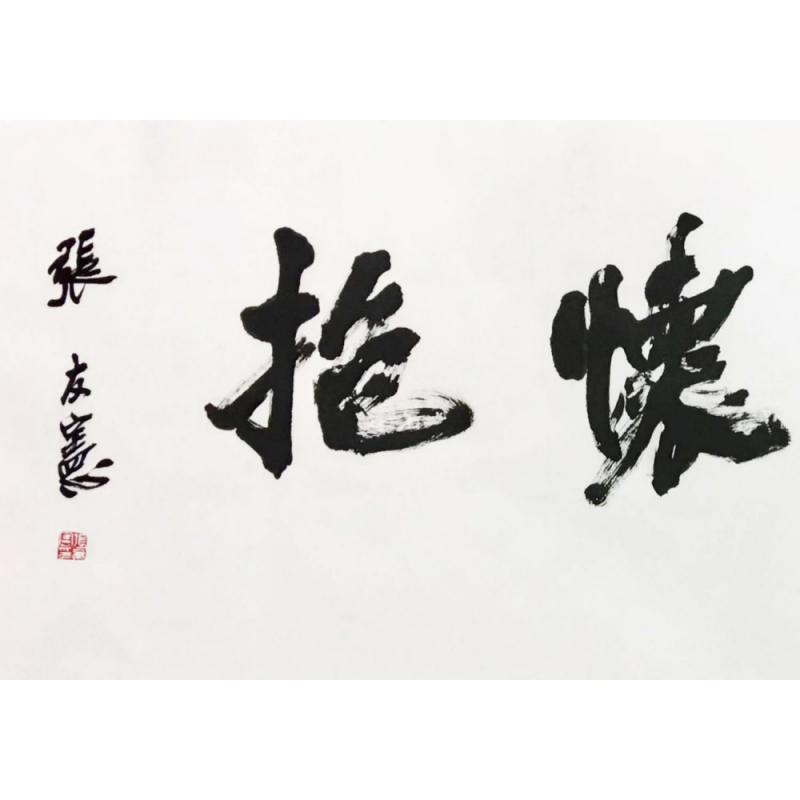 懷抱
張友憲